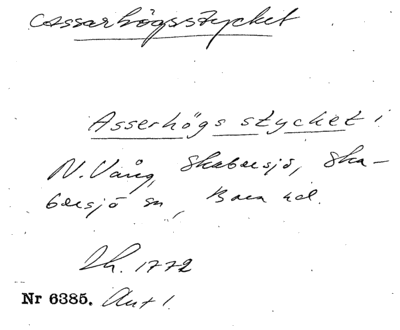 Assarhögsstycket
Asserhögs stycket i
N. Vång, Skabersjö, Ska-
bersjö sn, Bara hd.
Lh. 1772
Nr 6385. Akt 1.